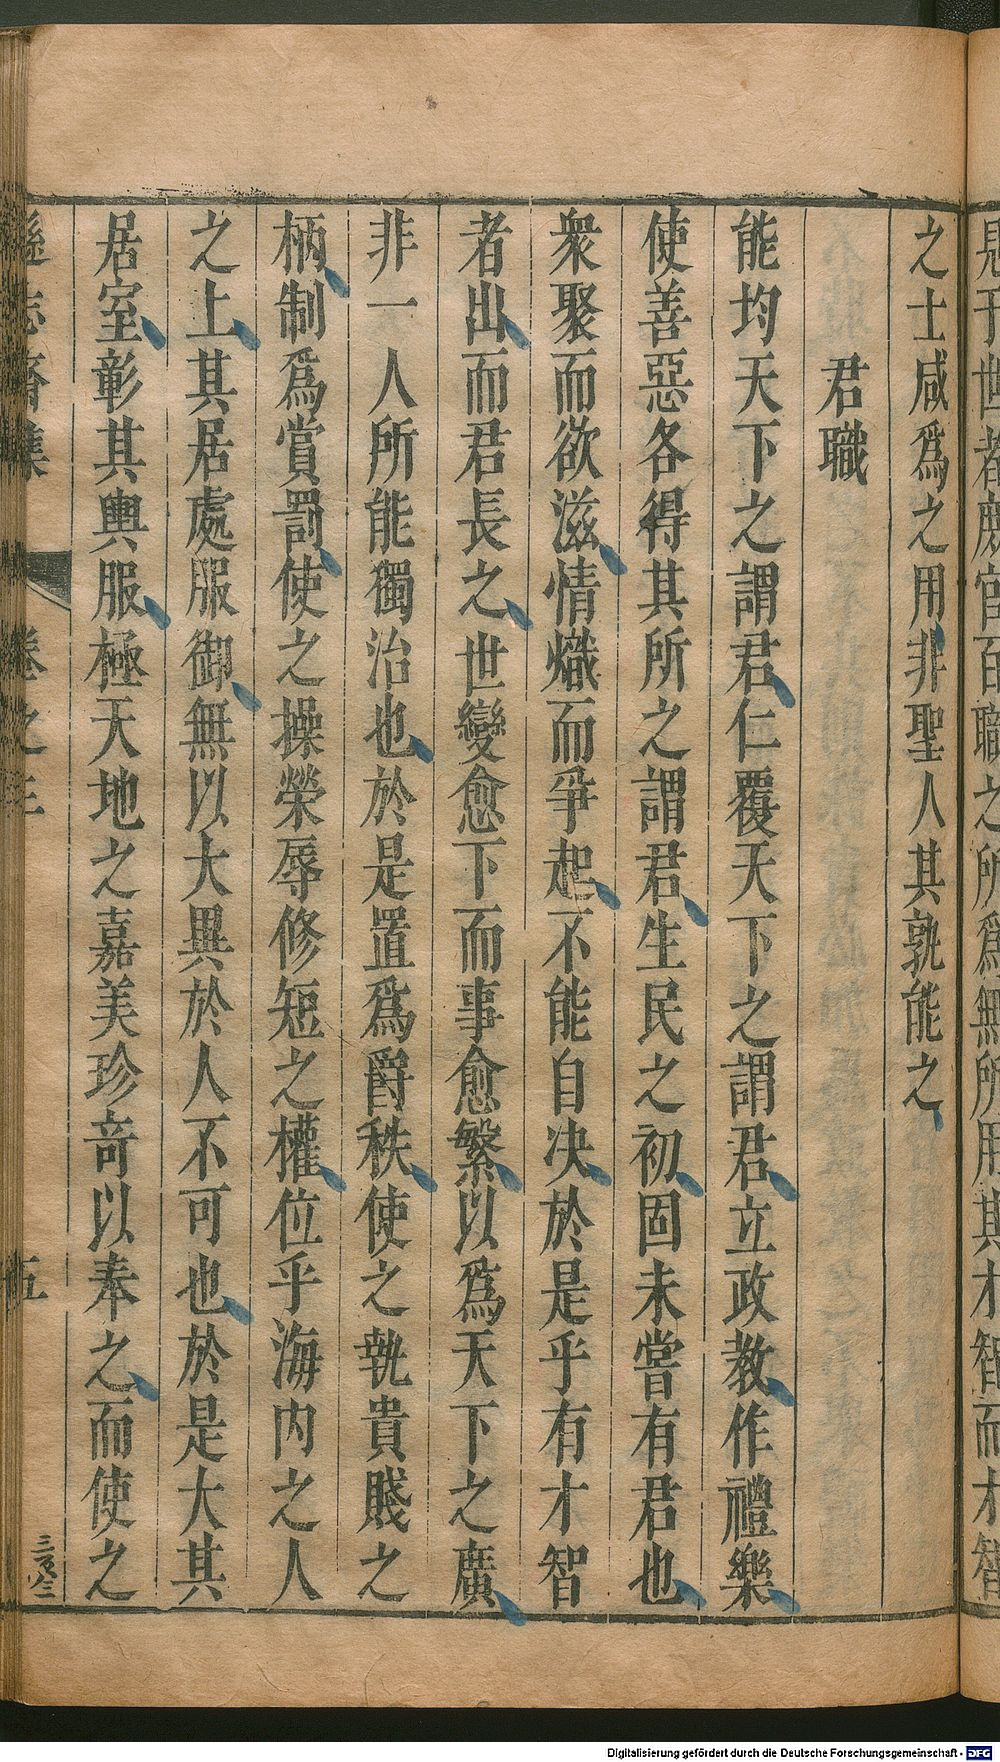 之士咸爲之用非聖人其孰能之
君職
能均天下之謂君仁覆天下之謂君立政教作禮樂
使善惡各得其所之謂君生民之初固未嘗有君也
衆聚而欲滋情熾而爭起不能自决於是乎有才智
者出而君長之世變愈下而事愈繁以爲天下之廣
非一人所能獨治也於是置爲爵秩使之執貴賤之
柄制爲賞罰使之操榮辱修短之權位乎海内之人
之上其居處服御無以大異於人不可也於是大其
居室彰其輿服極天地之嘉美珍竒以奉之而使之
遜志齋集 卷之三 五
Digitalisierung gefördert durch die Deutsche Forschungsgemeinschaft - DFG